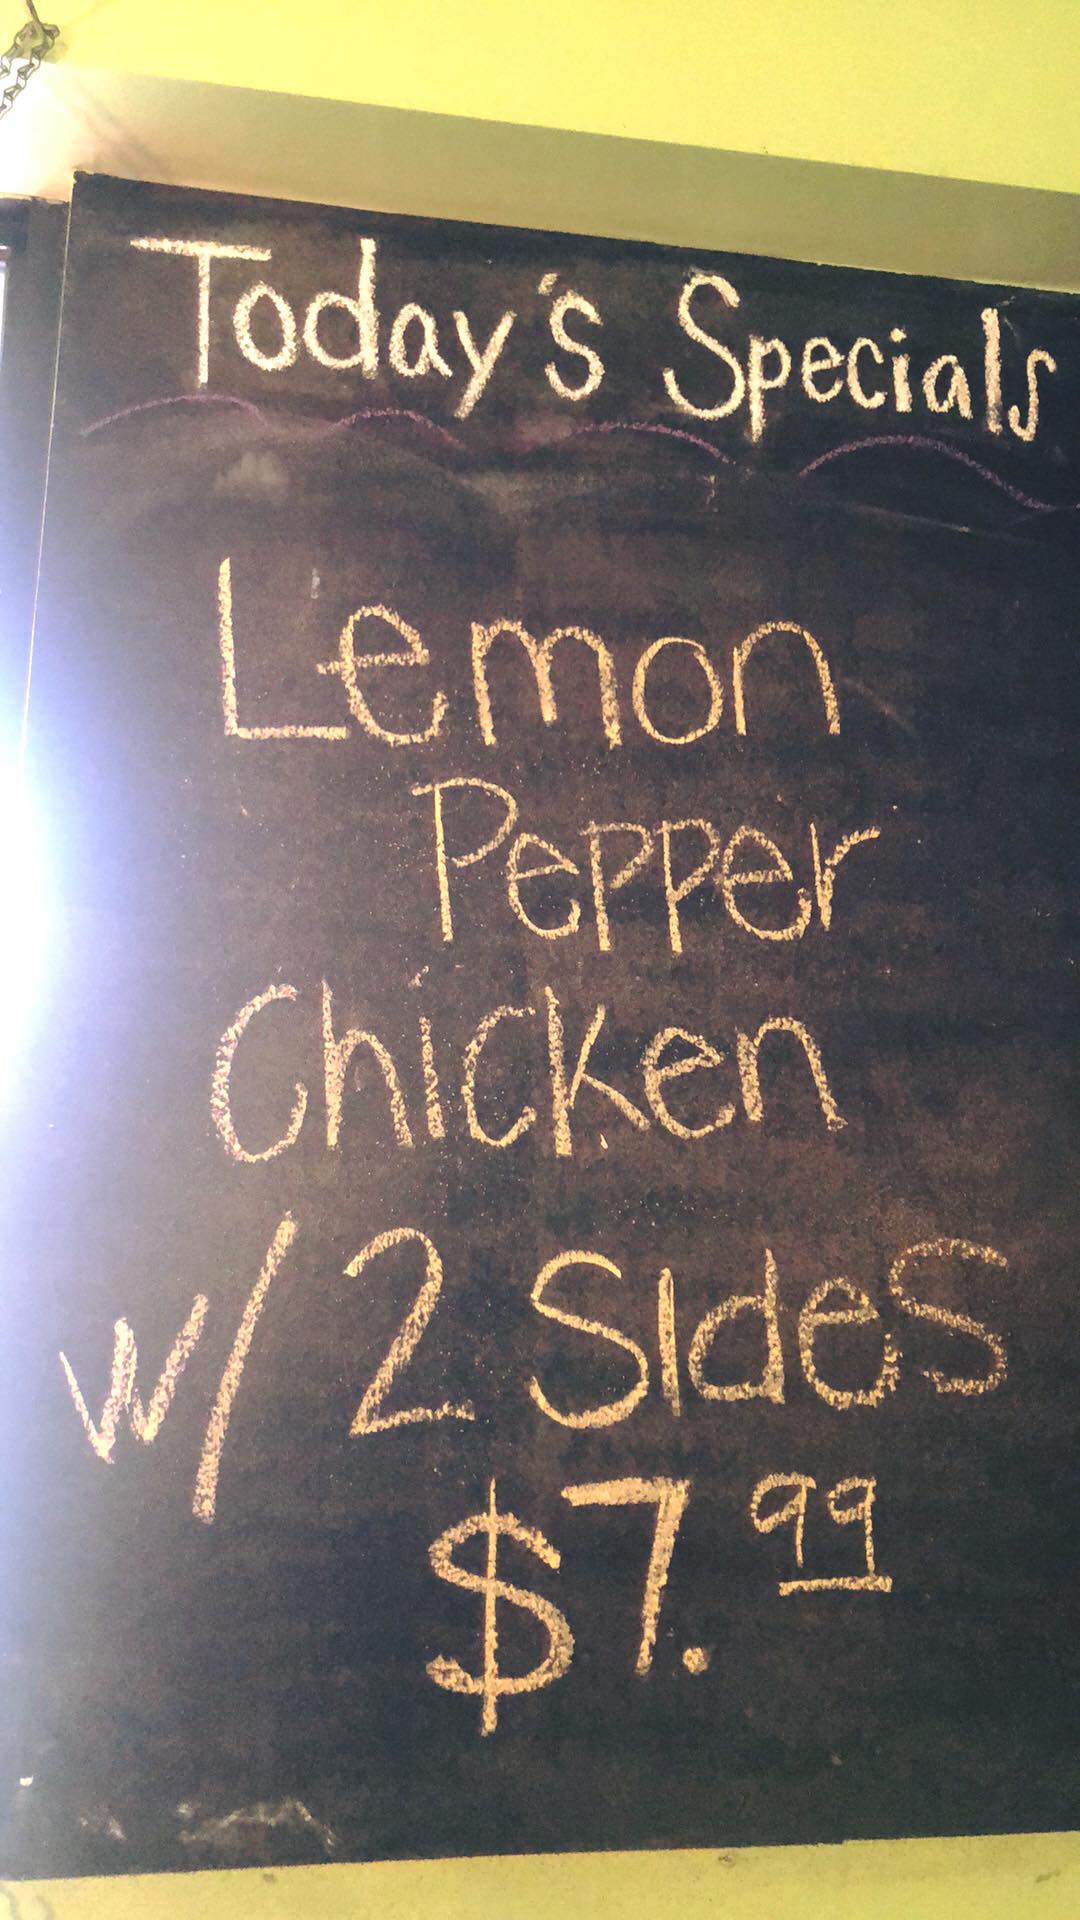 Today's Specials
Lemon
Pepper
Chicken
w/ 2 Sides
$7.99